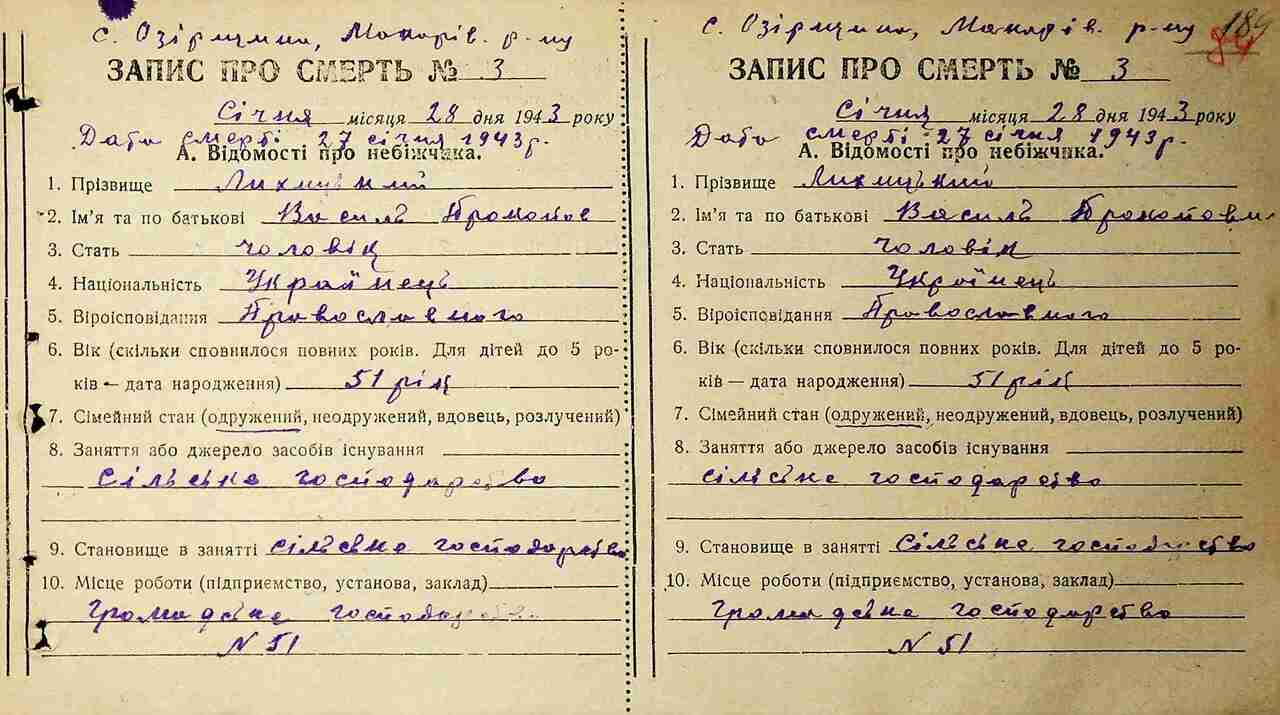 с. Озірщина, Макарів. р-ну
ЗАПИС ПРО СМЕРТЬ № 3
Січня місяця 28 дня 1943 року
Дата смерті 27 січня 1943 р.
А. Відомості про небіжчика.
1. Прізвище
2. Ім'я та по батькові Василь Прокопов
3. Стать чоловік
4. Національність Українець
5. Віроісповідання Православного
6. Вік (скільки сповнилося повних років. Для дітей до 5 ро-
ків — дата народження) 51 рік
7. Сімейний стан (одружений, неодружений, вдовець, розлучений)
8. Заняття або джерело засобів існування
сільське господарство
9. Становище в занятті сільське господарство
10. Місце роботи (підприємство, установа, заклад)
громадське господарство
N 51
с. Озірщина, Макарів. р-ну 184
ЗАПИС ПРО СМЕРТЬ № 3
Січня місяця 28 дня 1943 року
Дата смерті 27 січня 1943 р.
А. Відомості про небіжчика.
1. Прізвище
2. Ім'я та по батькові Василь Прокопови
3. Стать чоловік
4. Національність Українець
5. Віроісповідання Православного
6. Вік (скільки сповнилося повних років. Для дітей до 5 ро-
ків — дата народження) 51 рік
7. Сімейний стан (одружений, неодружений, вдовець, розлучений)
8. Заняття або джерело засобів існування
сільське господарство
9. Становище в занятті сільське господарство
10. Місце роботи (підприємство, установа, заклад)
громадське господарство
N 51